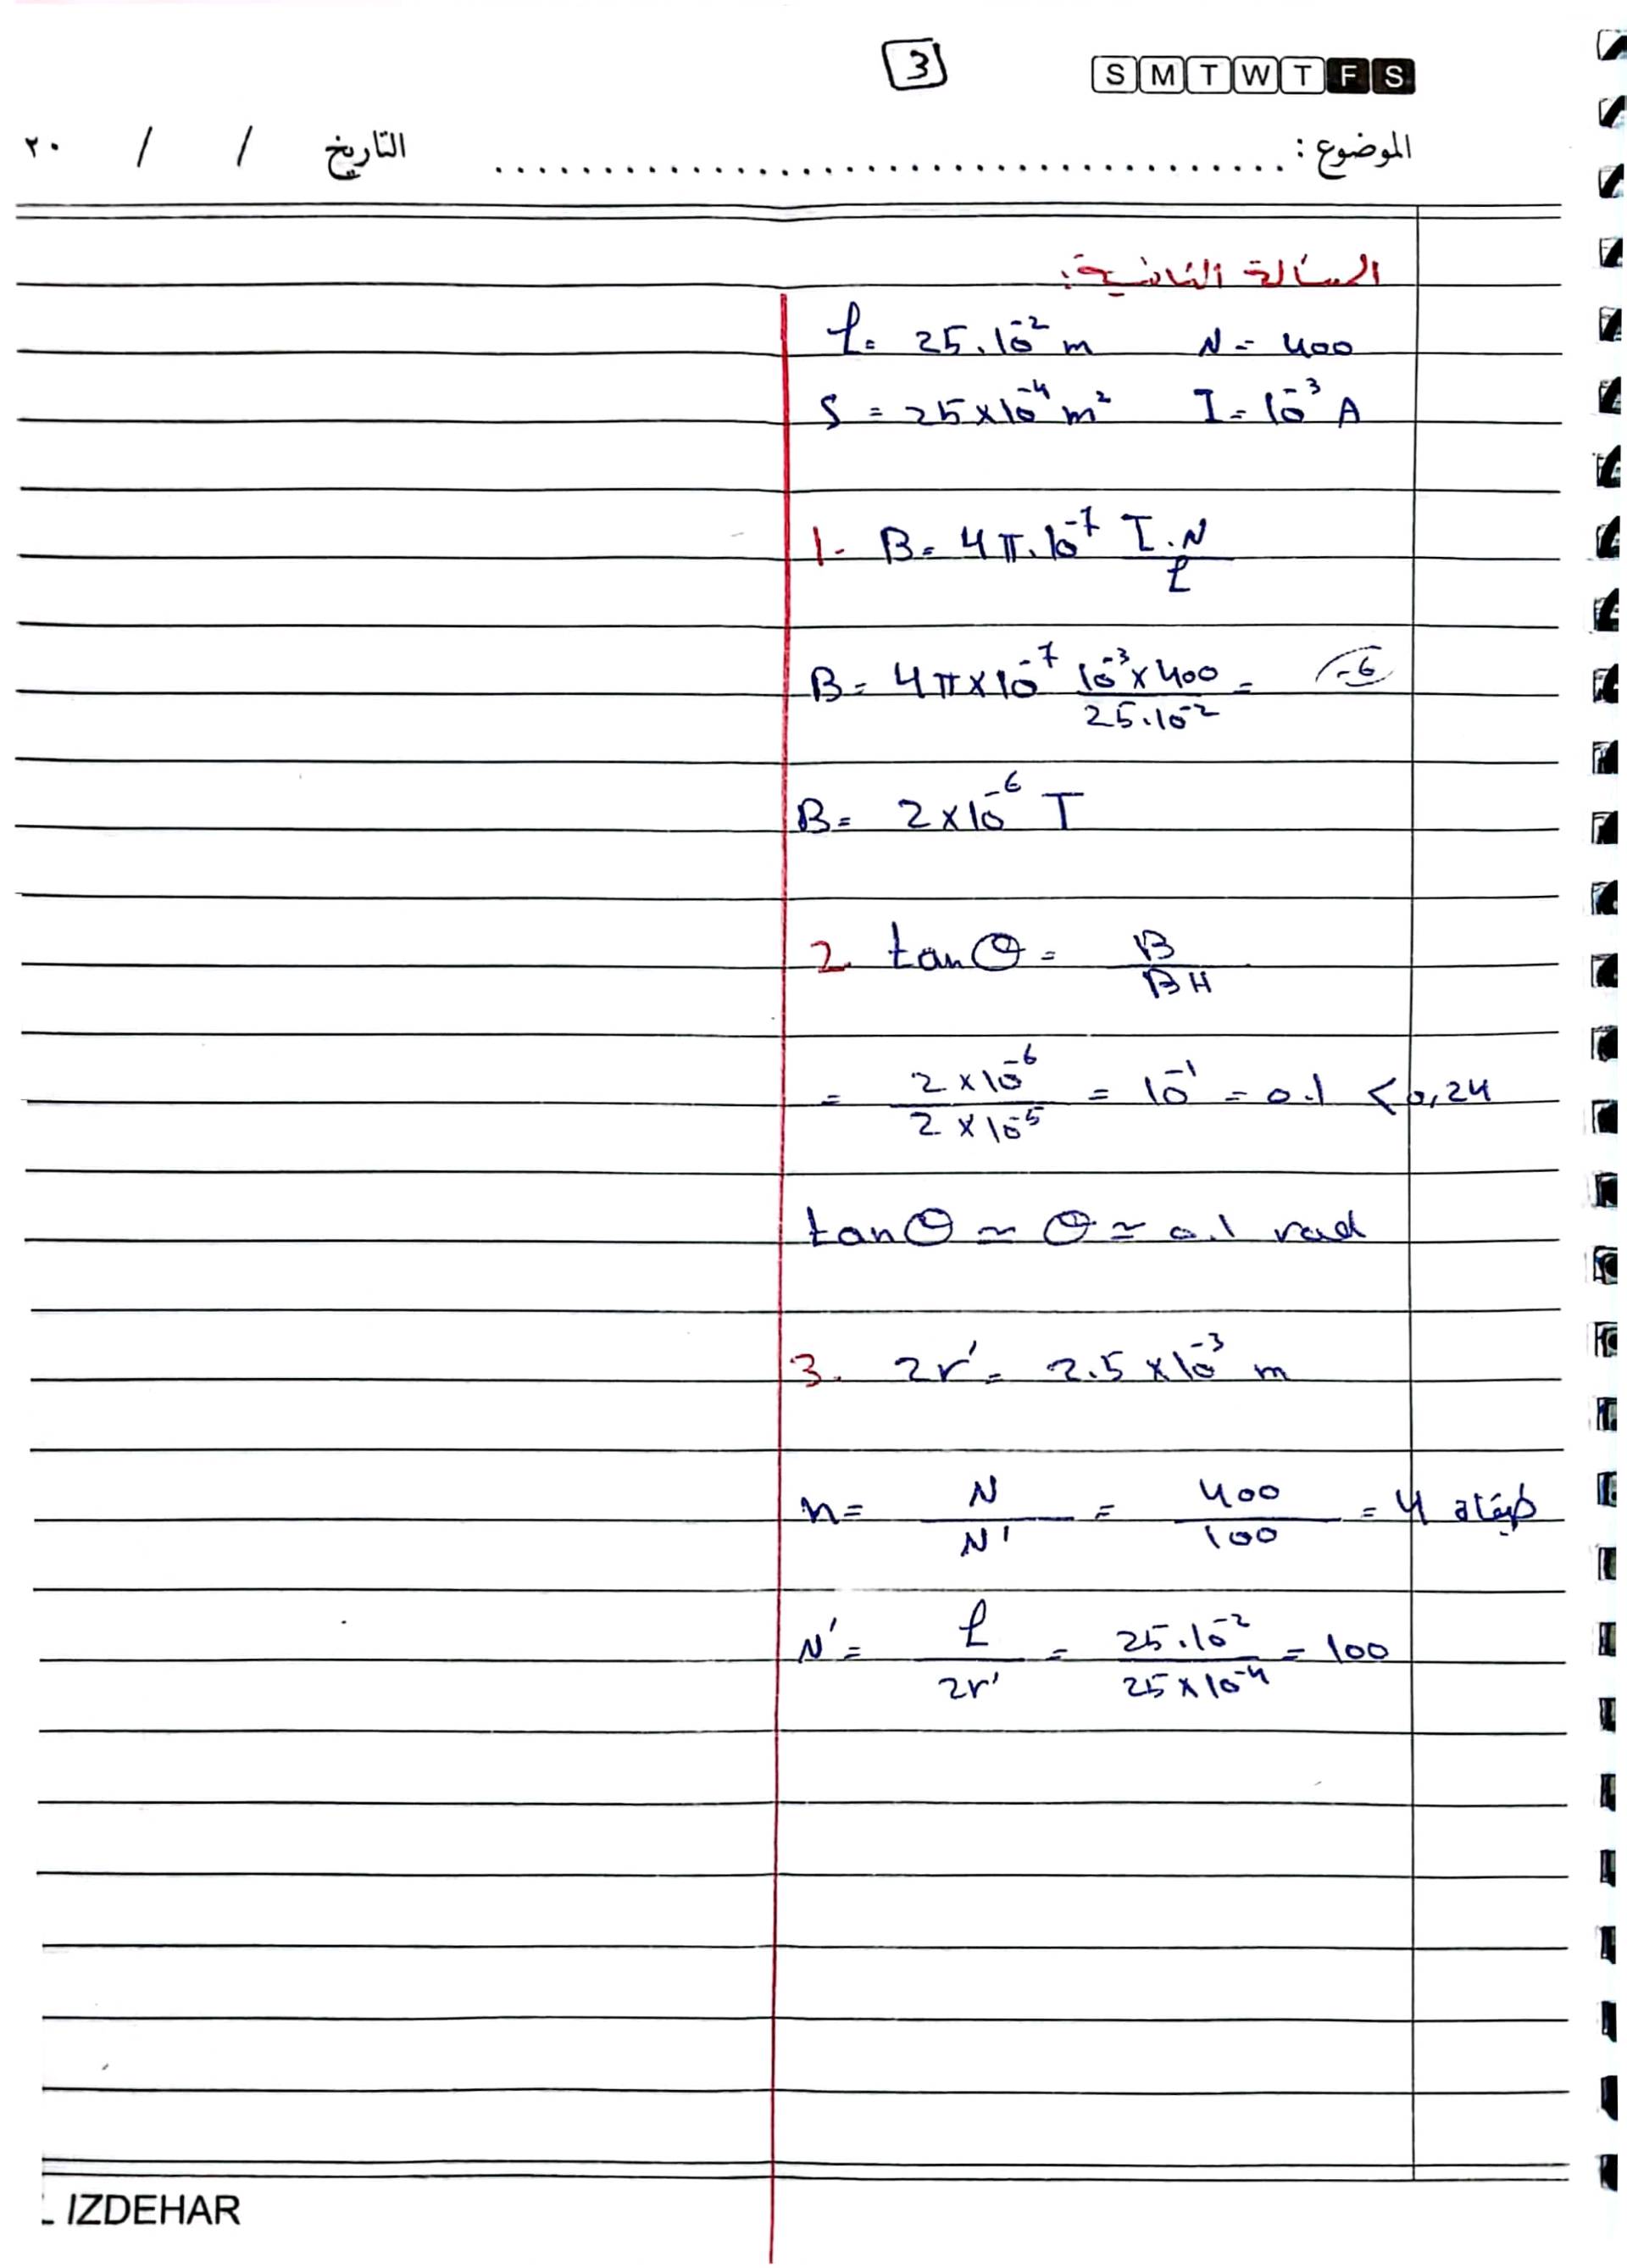 3
S M T W T F S
الموضوع : ........................................ التاريخ / / ٢٠
المسألة الثانية:
ℓ = 25.10⁻² m N = 400
S = 25×10⁻⁴ m² I = 10⁻³ A
1- B = 4π.10⁻⁷ I.N/ℓ
B = 4π×10⁻⁷ 10⁻³×400/25.10⁻² = -6
B = 2×10⁻⁶ T
2. tanθ = B/BH
= 2×10⁻⁶/2×10⁻⁵ = 10⁻¹ = 0.1 < 0,24
tanθ ≃ θ ≃ 0.1 rad
3. 2r' = 2.5×10⁻³ m
n = N/N' = 400/100 = 4 طبقات
N' = ℓ/2r' = 25.10⁻²/25×10⁻⁴ = 100
IZDEHAR